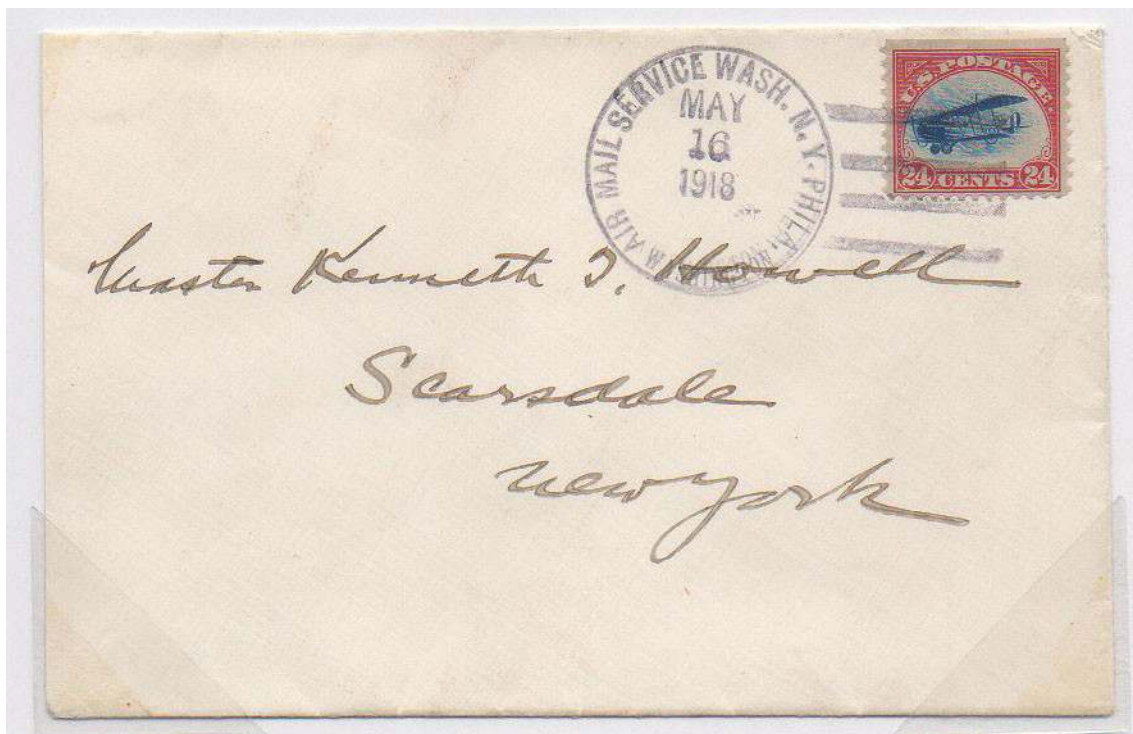 AIR MAIL SERVICE WASH. N.Y. PHILA.
MAY
16
1918
WASHINGTON
U.S. POSTAGE
24 CENTS 24
Master Kenneth I. Howell
Scarsdale
New York